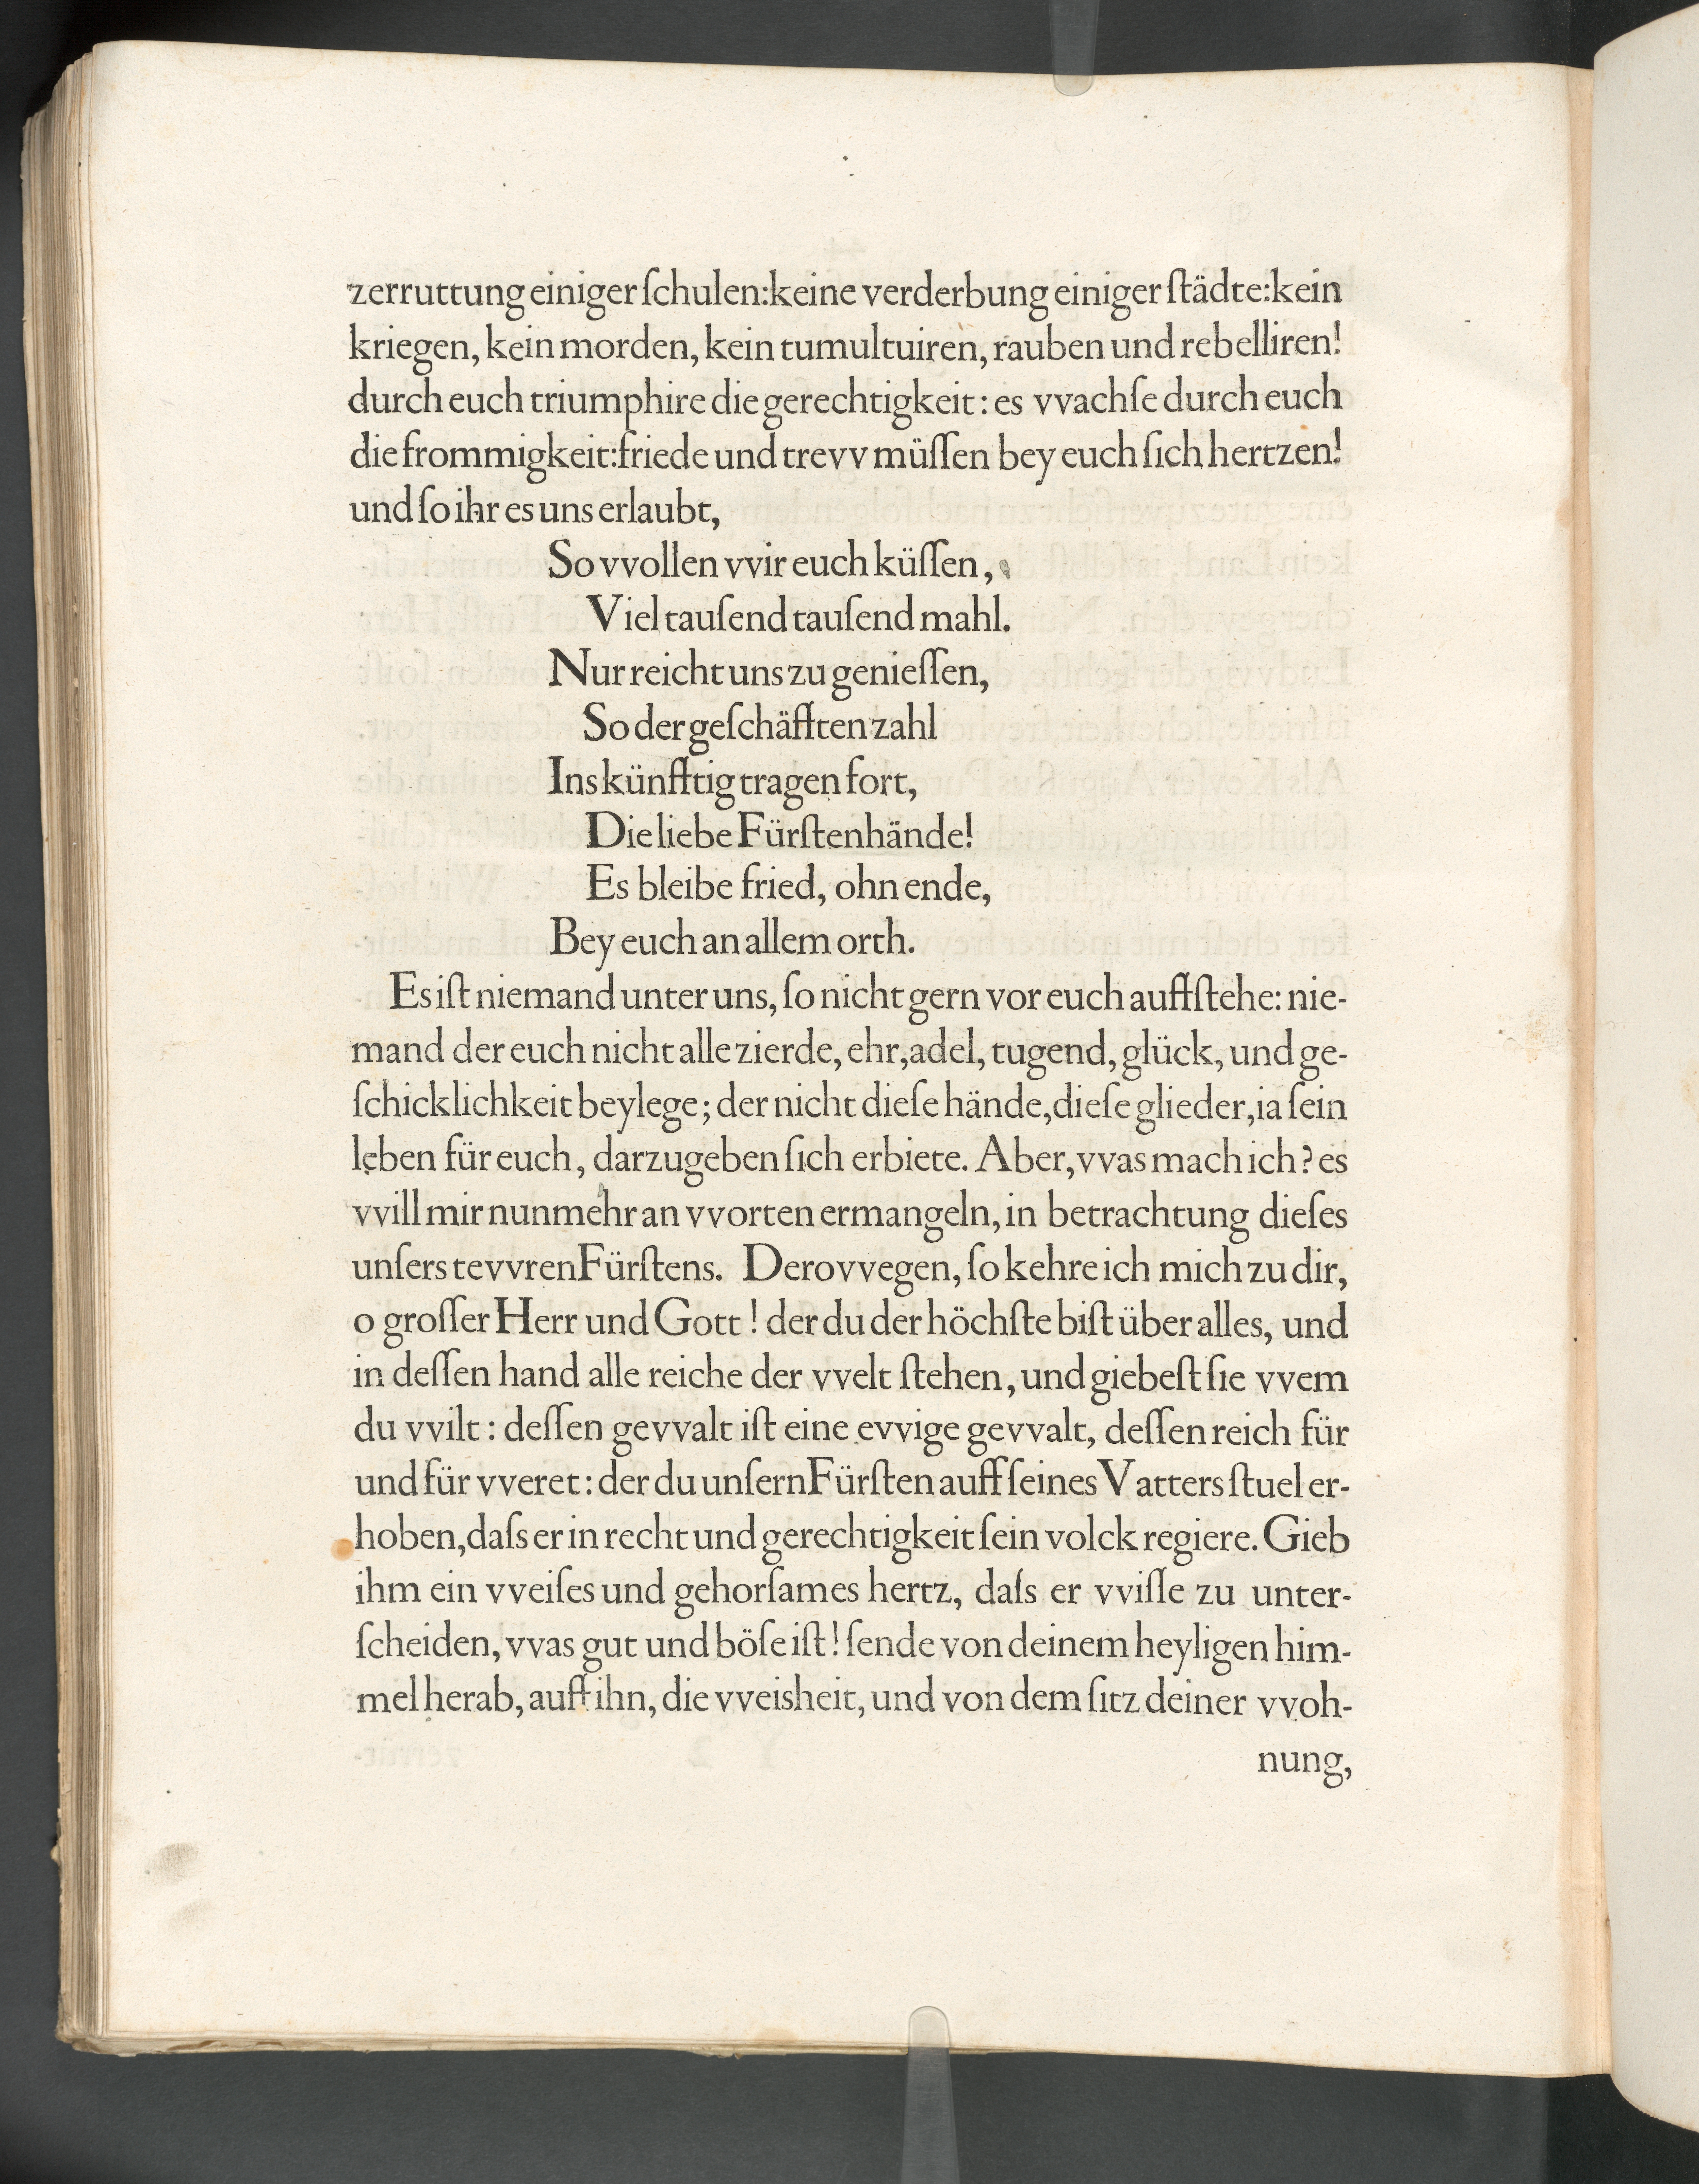 zerruttung einiger ſchulen: keine verderbung einiger ſtädte: kein
kriegen, kein morden, kein tumultuiren, rauben und rebelliren!
durch euch triumphire die gerechtigkeit: es vvachſe durch euch
die frommigkeit: friede und trevv müſſen bey euch ſich hertzen!
und ſo ihr es uns erlaubt,
So vvollen vvir euch küſſen,
Viel tauſend tauſend mahl.
Nur reicht uns zu genieſſen,
So der geſchäfften zahl
Ins künfftig tragen fort,
Die liebe Fürſtenhände!
Es bleibe fried, ohn ende,
Bey euch an allem orth.
Es iſt niemand unter uns, ſo nicht gern vor euch auffſtehe: nie-
mand der euch nicht alle zierde, ehr, adel, tugend, glück, und ge-
ſchicklichkeit beylege; der nicht dieſe hände, dieſe glieder, ia ſein
leben für euch, darzugeben ſich erbiete. Aber, vvas mach ich? es
vvill mir nunmehr an vvorten ermangeln, in betrachtung dieſes
unſers tevvren Fürſtens. Derovvegen, ſo kehre ich mich zu dir,
o groſſer Herr und Gott! der du der höchſte biſt über alles, und
in deſſen hand alle reiche der vvelt ſtehen, und giebeſt ſie vvem
du vvilt: deſſen gevvalt iſt eine evvige gevvalt, deſſen reich für
und für vveret: der du unſern Fürſten auff ſeines Vatters ſtuel er-
hoben, daſs er in recht und gerechtigkeit ſein volck regiere. Gieb
ihm ein vveiſes und gehorſames hertz, daſs er vviſſe zu unter-
ſcheiden, vvas gut und böſe iſt! ſende von deinem heyligen him-
mel herab, auff ihn, die vveisheit, und von dem ſitz deiner vvoh-
nung,